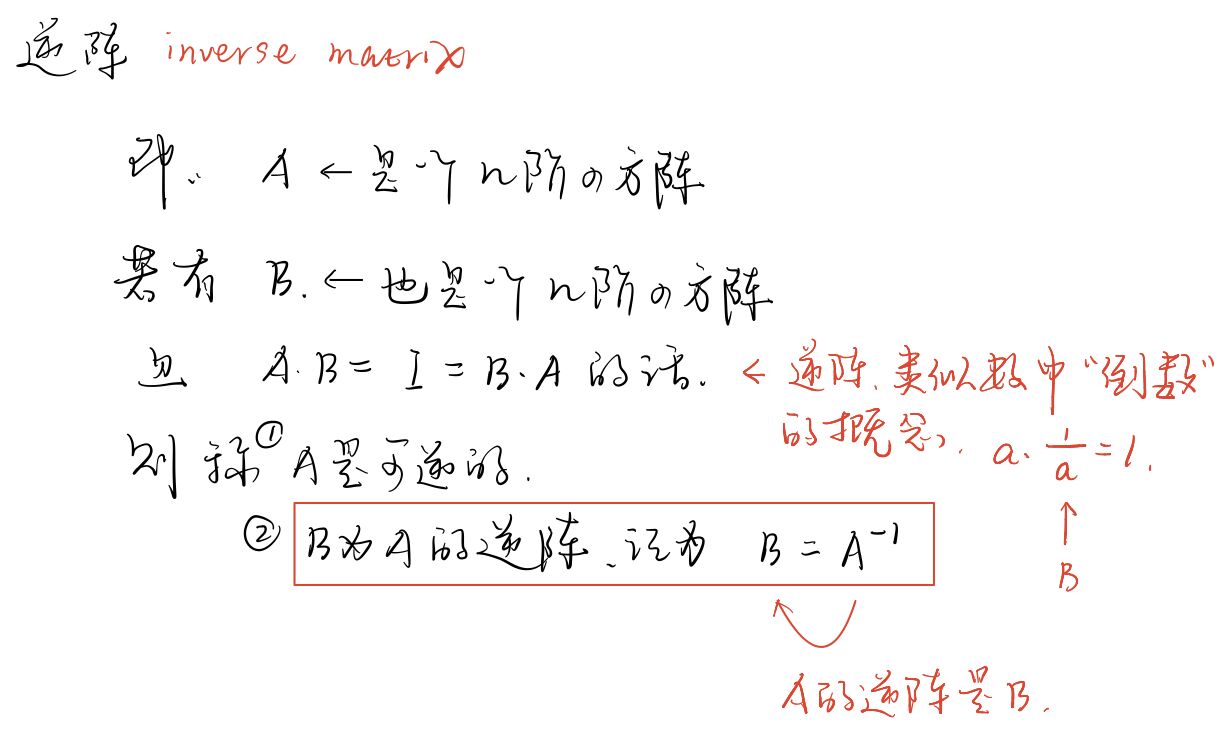 逆阵 inverse matrix
即: A ← 是一个n阶の方阵
若有 B. ← 也是一个n阶の方阵
且 A.B = I = B.A 的话. ← 逆阵、类似数中“倒数”
的概念、. a. 1/a = 1.
则称 ① A是可逆的.
② B为A的逆阵、记为 B = A⁻¹
↑
B
A的逆阵是B.